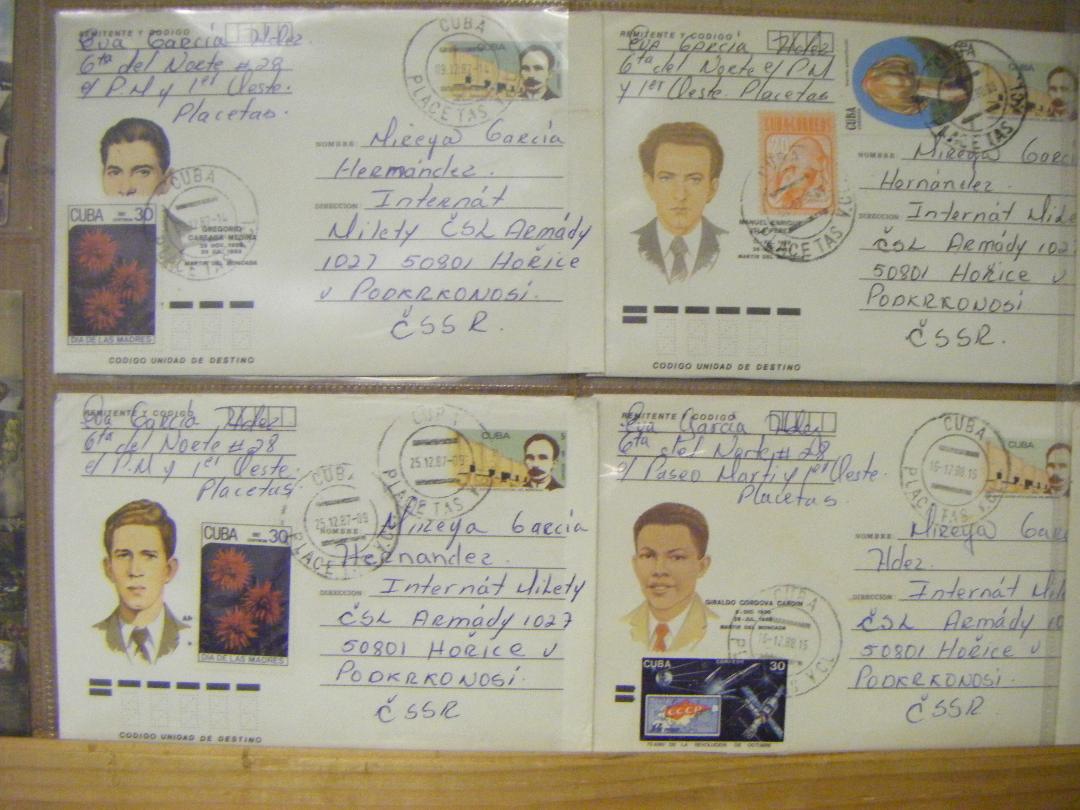 REMITENTE Y CODIGO
Eva García Hdez.
6ta del Norte # 28
e/ P.M y 1er Oeste.
Placetas.
CUBA
09.12.87-14
PLACETAS
CUBA
NOMBRE: Mireya García
Hernández.
DIRECCION: Internát
Milety ČSL Armády
1027 50801 Hořice
v PODKRKONOSí.
ČSSR.
CUBA
GREGORIO
CAREAGA MEDINA
MARTIR DEL MONCADA
CUBA 30
DIA DE LAS MADRES
CODIGO UNIDAD DE DESTINO
REMITENTE Y CODIGO
Eva García Hdez
6ta del Norte e/ P.M
y 1er Oeste. Placetas
CUBA
CUBA CORREOS
20
PLACETAS
NOMBRE: Mireya Garc
Hernández.
DIRECCION: Internát Mile
ČSL Armády 102
50801 Hořice v
PODKRKONOSí
ČSSR.
MANUEL ENRIQUE
MARTIR DEL MONCADA
PLACETAS V.C
CODIGO UNIDAD DE DESTINO
REMITENTE Y CODIGO
Eva García Hdez
6ta del Norte # 28
e/ P.M y 1er Oeste.
Placetas.
CUBA
25.12.87-09
PLACETAS V.
CUBA
CUBA
25.12.87-09
PLACETAS V.C
NOMBRE: Mireya García
Hernandez.
DIRECCION Internát Milety
ČSL Armády 1027
50801 Hořice v
PODKRKONOSí.
ČSSR
CUBA 30
DIA DE LAS MADRES
CODIGO UNIDAD DE DESTINO
REMITENTE Y CODIGO
Eva García Hdez
6ta del Norte # 28
e/ Paseo Martí y 1er Oeste.
Placetas
CUBA
16-12.88.15
PLACETAS V.C
CUBA
NOMBRE: Mireya Gar
Hdez.
DIRECCION: Internát Mil
ČSL Armády 10
50801 Hořice v
PODKRKONOSí.
ČSSR
GIRALDO CORDOVA CARDIN
MARTIR DEL MONCADA
CUBA
16-12.88.15
CUBA 30
CCCP
70 ANIV DE LA REVOLUCION DE OCTUBRE